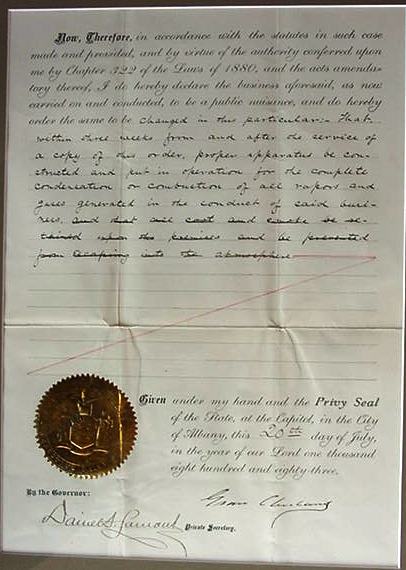 Now, Therefore, in accordance with the statutes in such case
made and provided, and by virtue of the authority conferred upon
me by Chapter 322 of the Laws of 1880, and the acts amenda-
tory thereof, I do hereby declare the business aforesaid, as now
carried on and conducted, to be a public nuisance, and do hereby
order the same to be changed in this particular:- That
within three weeks from and after the service of
a copy of this order, proper apparatus be con-
structed and put in operation for the complete
condensation or combustion of all vapors and
gases generated in the conduct of said busi-
ness, and that all and smoke be re-
tained upon the premises and be prevented
from escaping into the atmosphere
Given under my hand and the Privy Seal
of the State, at the Capitol, in the City
of Albany, this 20th day of July,
in the year of our Lord one thousand
eight hundred and eighty-three.
By the Governor:
Grover Cleveland
Daniel S. Lamont
Private Secretary.